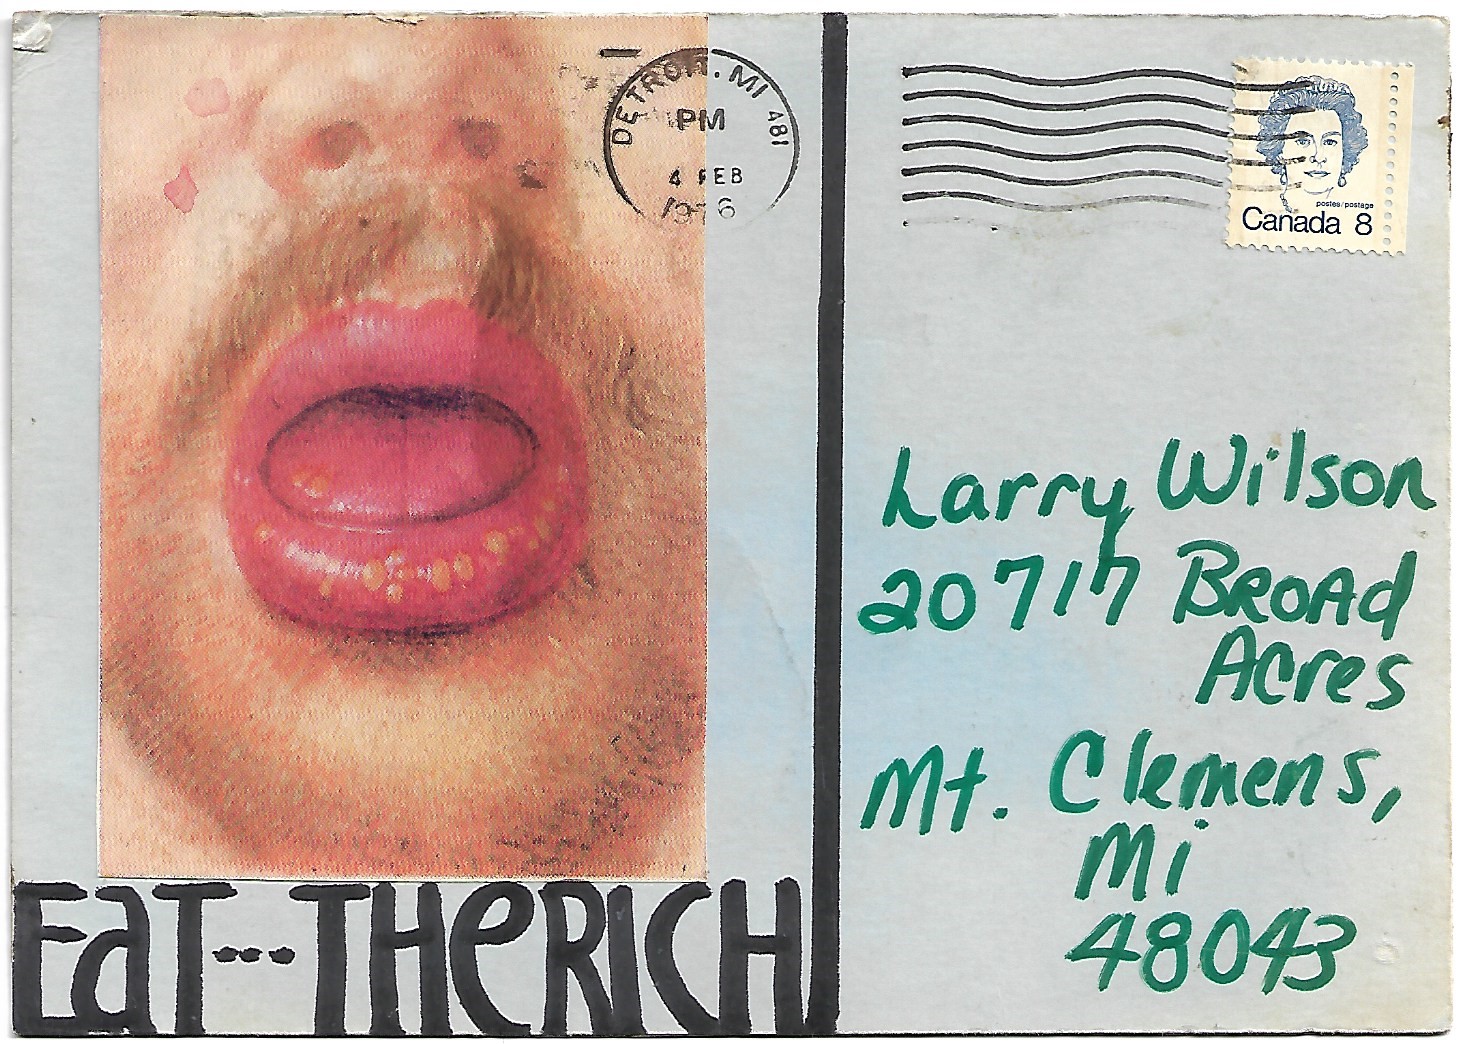 DETROIT. MI 481
PM
4 FEB
1976
postes/postage
Canada 8
Larry Wilson
20717 BROAd
Acres
Mt. Clemens,
Mi
48043
EaT--- THeRICH